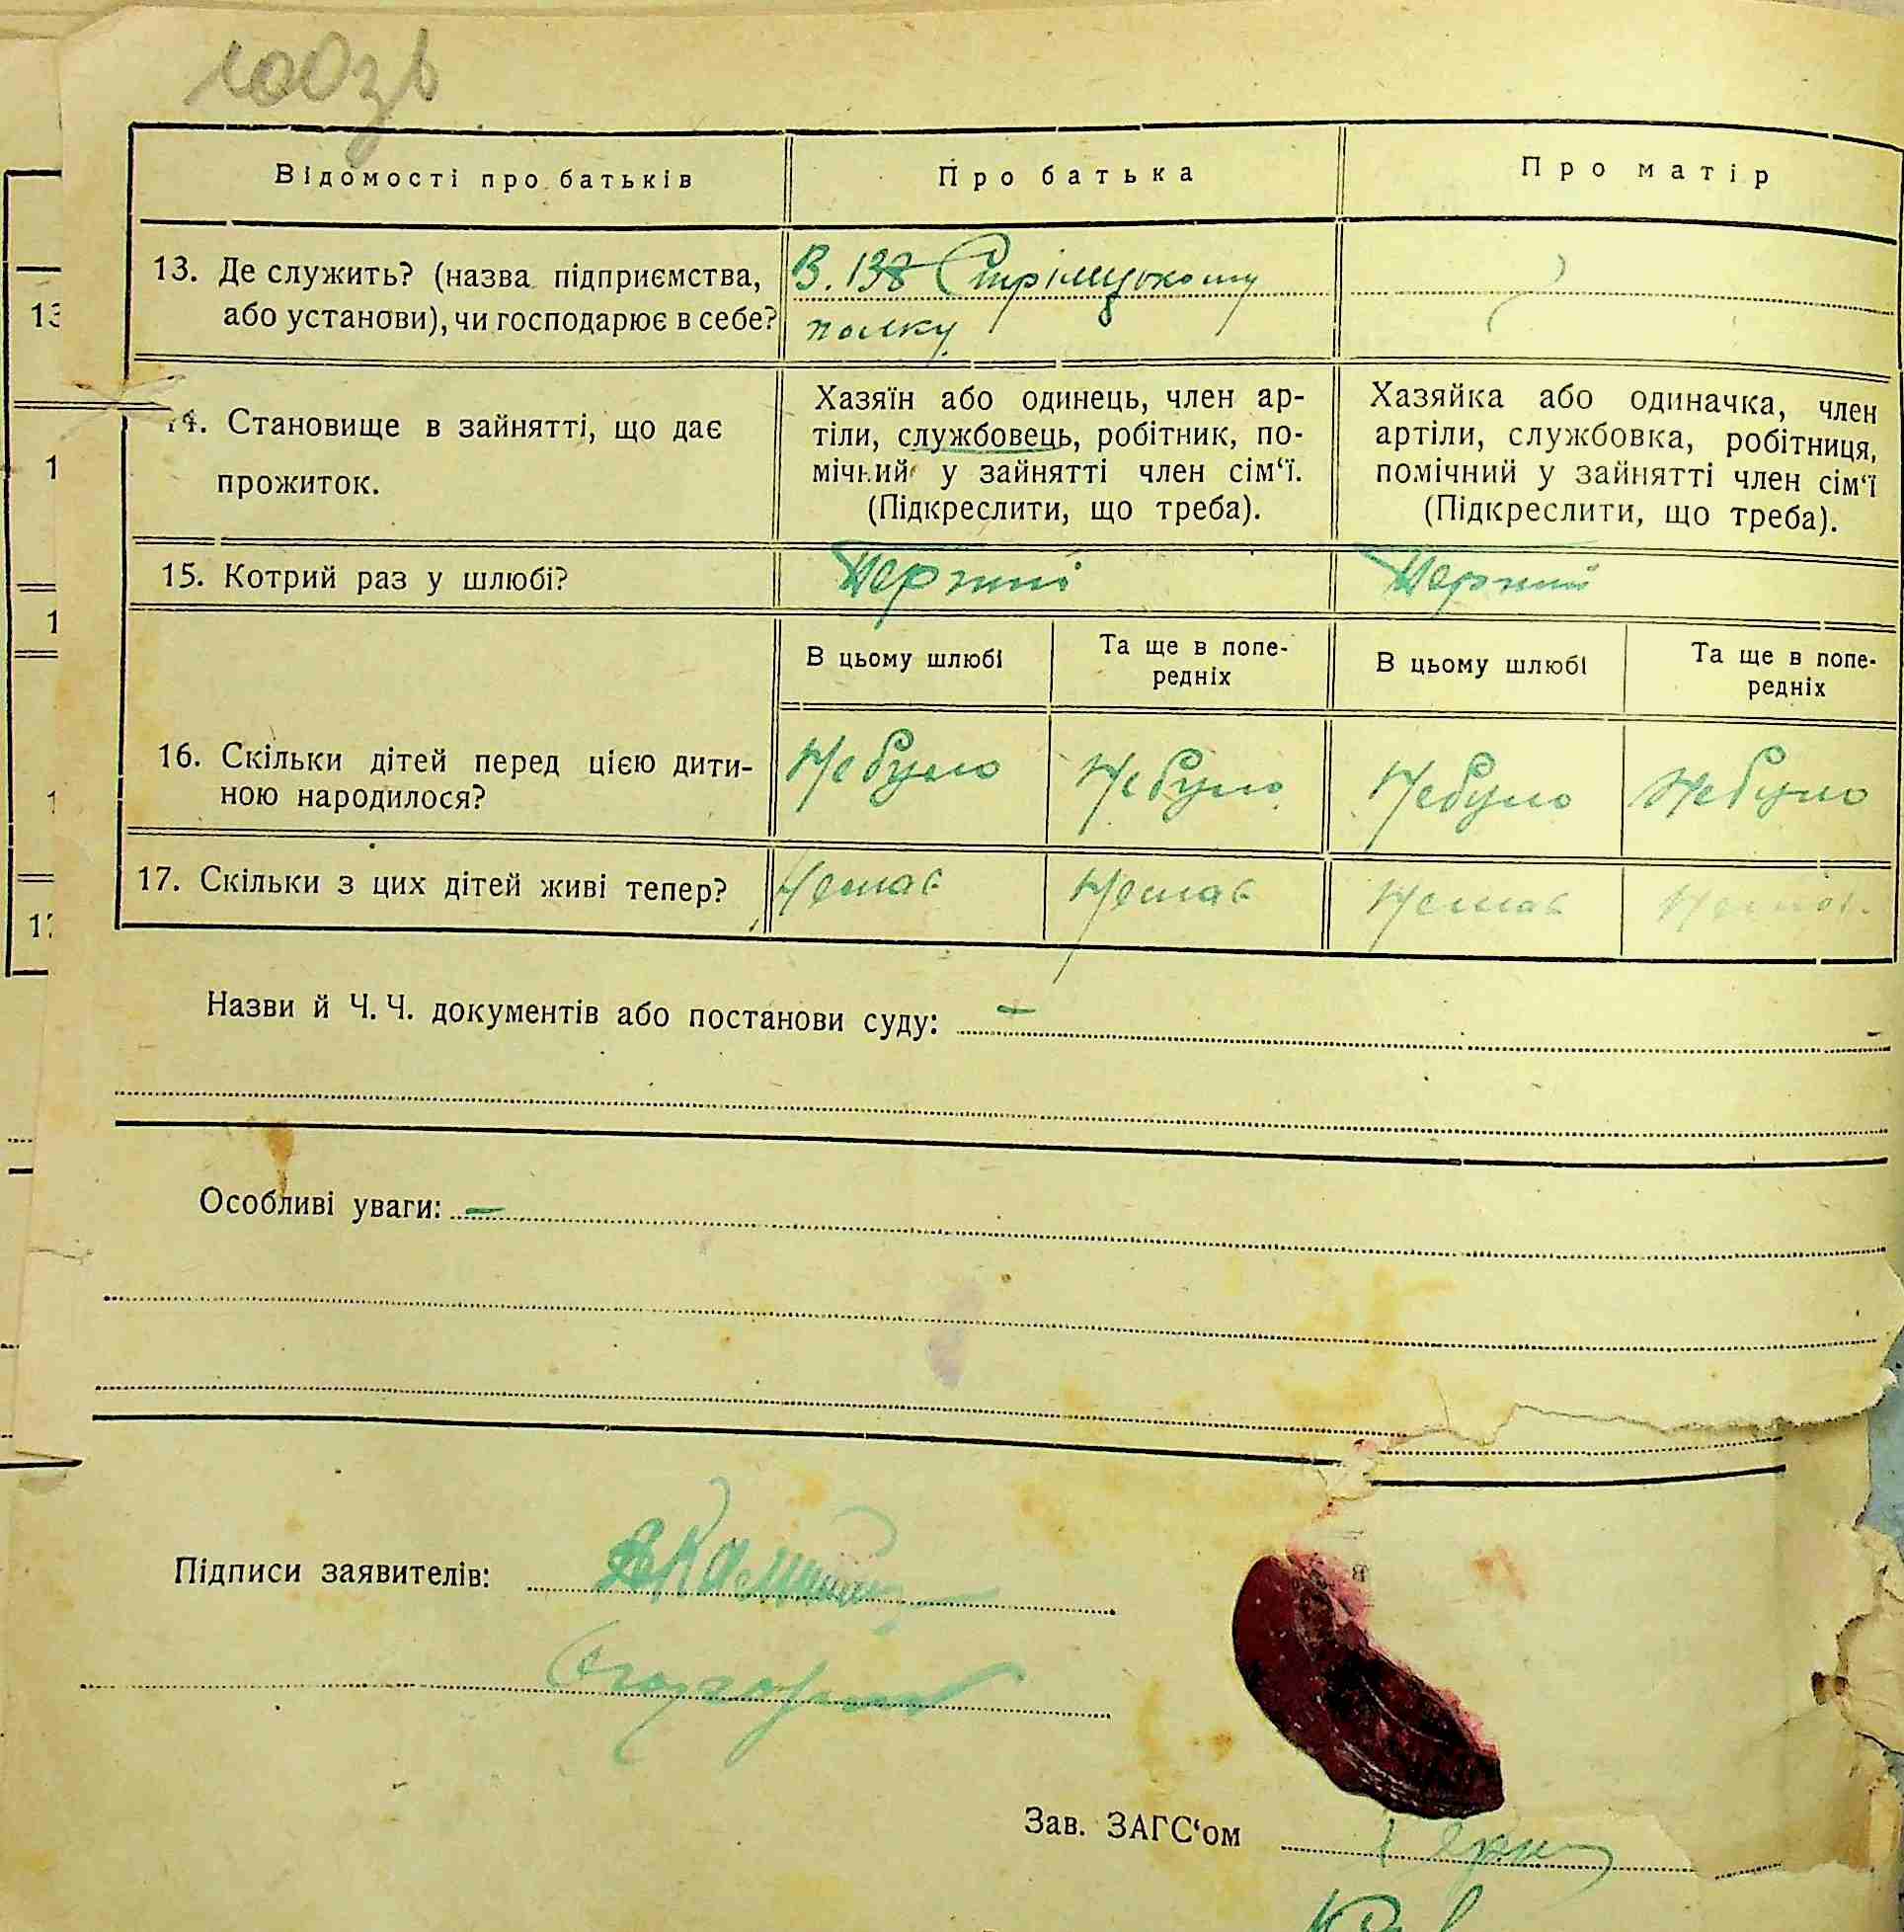 Відомості про батьків
Про батька
Про матір
13. Де служить? (назва підприємства,
або установи), чи господарює в себе?
В. 138 Стрілецькому
полку
14. Становище в зайнятті, що дає
прожиток.
Хазяїн або одинець, член ар-
тіли, службовець, робітник, по-
мічний у зайнятті член сім‘ї.
(Підкреслити, що треба).
Хазяйка або одиначка, член
артіли, службовка, робітниця,
помічний у зайнятті член сім‘ї
(Підкреслити, що треба).
15. Котрий раз у шлюбі?
Перший
Перший
В цьому шлюбі
Та ще в попе-
редніх
В цьому шлюбі
Та ще в попе-
редніх
16. Скільки дітей перед цією дити-
ною народилося?
Небуло
Небуло
Небуло
Небуло
17. Скільки з цих дітей живі тепер?
Немає
Немає
Немає
Немає
Назви й Ч. Ч. документів або постанови суду: –
Особливі уваги: –
Підписи заявителів:
Зав. ЗАГС‘ом
13
1
1
1
17